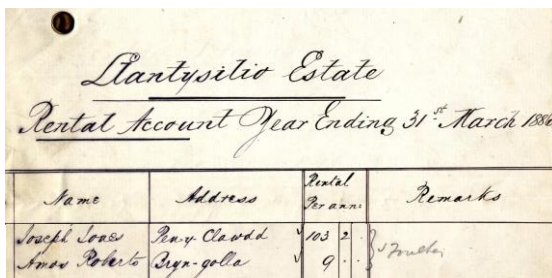 Llantysilio Estate
Rental Account Year Ending 31st March 1886
Name Address Rental Per ann: Remarks
Joseph Jones Pen-y-Clawdd 103 2 .
Amos Roberts Bryn-golla 9 . .